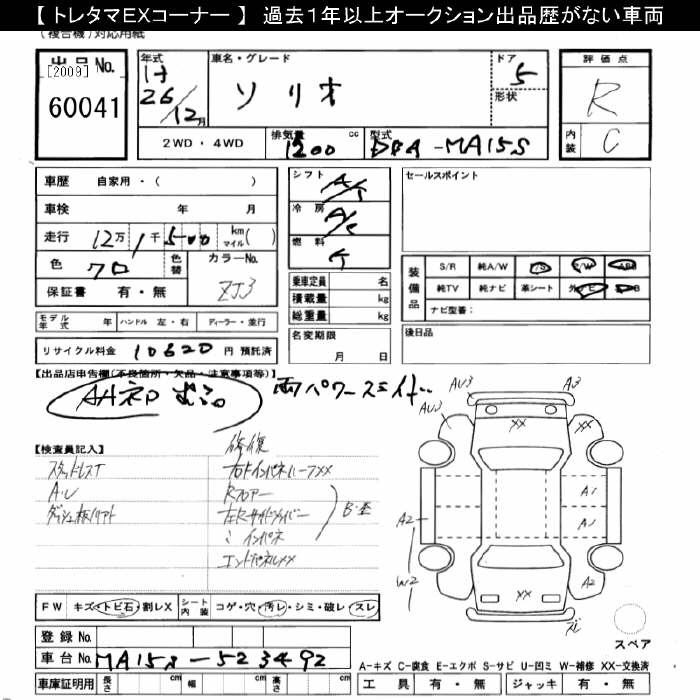 【 トレタマEXコーナー 】 過去1年以上オークション出品歴がない車両
(複合機)対応用紙
出品No.
[2009]
60041
年式
H
26/12月
車名・グレード
ソリオ
ドア
5
形状
評価点
R
内装
C
2WD・4WD
排気量
1200 cc
型式
DBA-MA15S
車歴 自家用・( )
車検 年 月
走行 12万1千500 km マイル( )
色 クロ 色替 カラーNo. ZJ3
保証書 有・無
シフト A/T
冷房 A/C
燃料
乗車定員 名
積載量 kg
総重量 kg
名変期限
月 日
セールスポイント
装備品
S/R 純A/W P/S P/W ABS
純TV 純ナビ 革シート
ナビ型番:
後日品
モデル年式 年 ハンドル 左・右 ディーラー・並行
リサイクル料金 10620 円 預託済
【出品店申告欄(不良箇所・欠品・注意事項等)】
両パワースライド
【検査員記入】
修復
スタッドレスT
右FインパネハーフXX
A・U
Rフロアー
左右Rサイドメンバー
インパネ
エンドパネルXX
FW キズ・トビ石・割レX シート内装 コゲ・穴・汚レ・シミ・破レ・スレ
登録No.
車台No. MA15S-523492
車庫証明用 長さ cm 幅 cm 高さ cm
AU3
A3
AU3
XX
XX
A1
A2
W2
A2
XX
スレ
スペア
A-キズ C-腐食 E-エクボ S-サビ U-凹ミ W-補修 XX-交換済
工具 有・無 ジャッキ 有・無